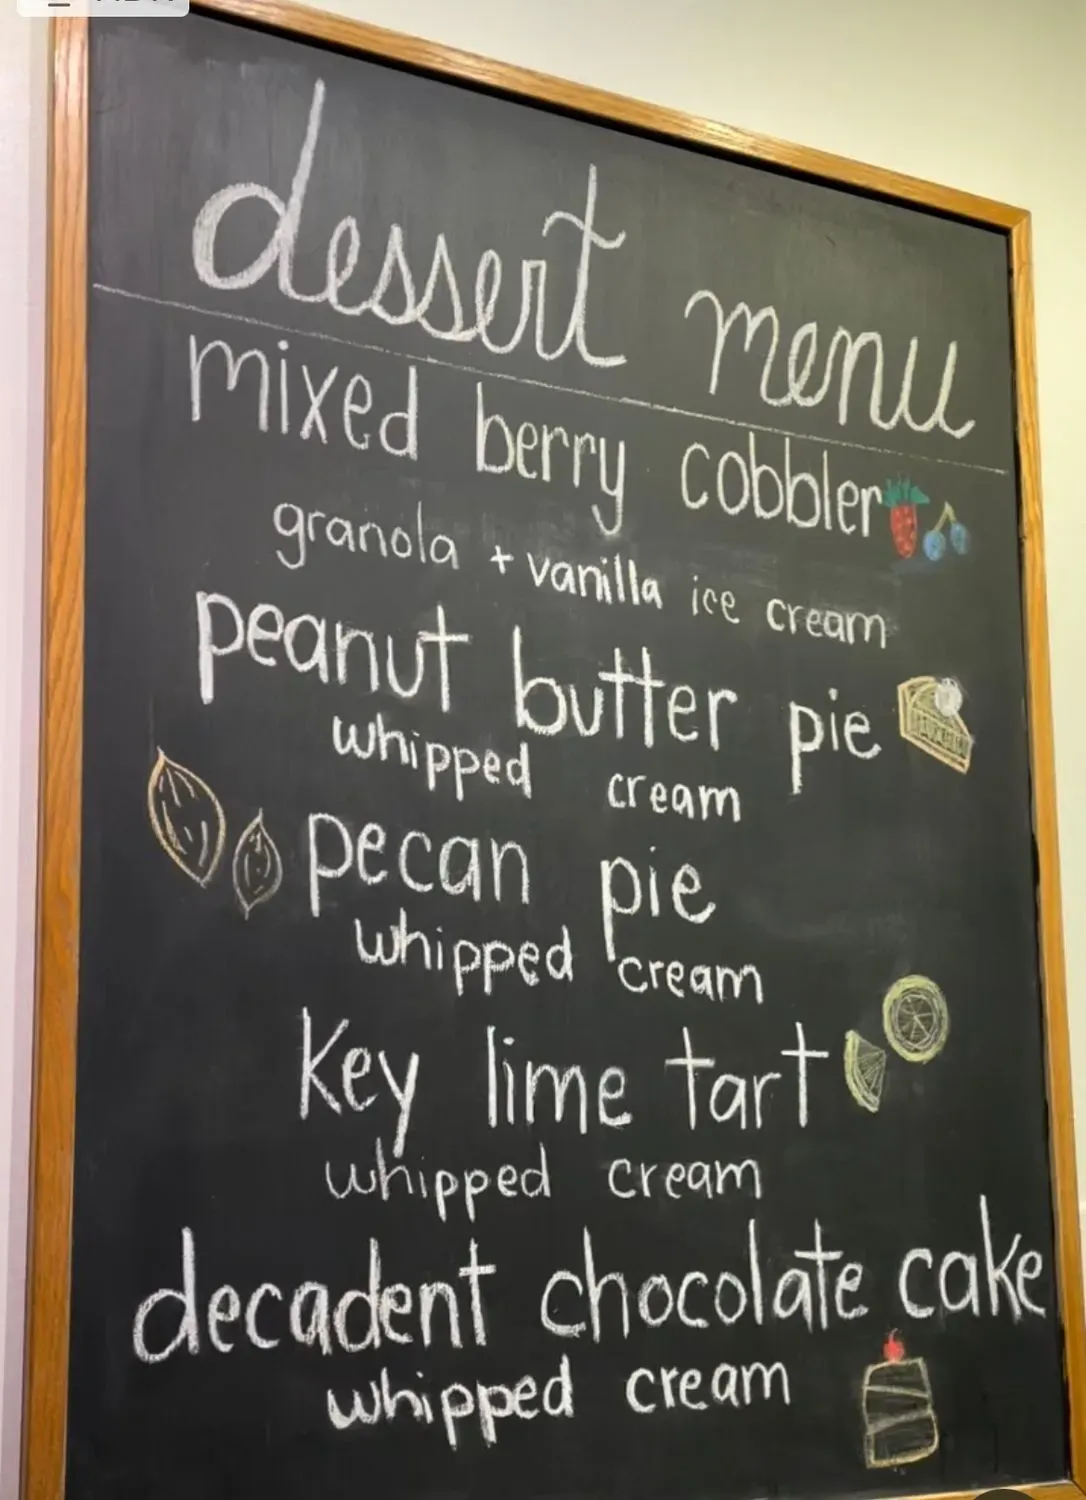 dessert menu
mixed berry cobbler
granola + vanilla ice cream
peanut butter pie
whipped cream
pecan pie
whipped cream
Key lime tart
whipped cream
decadent chocolate cake
whipped cream